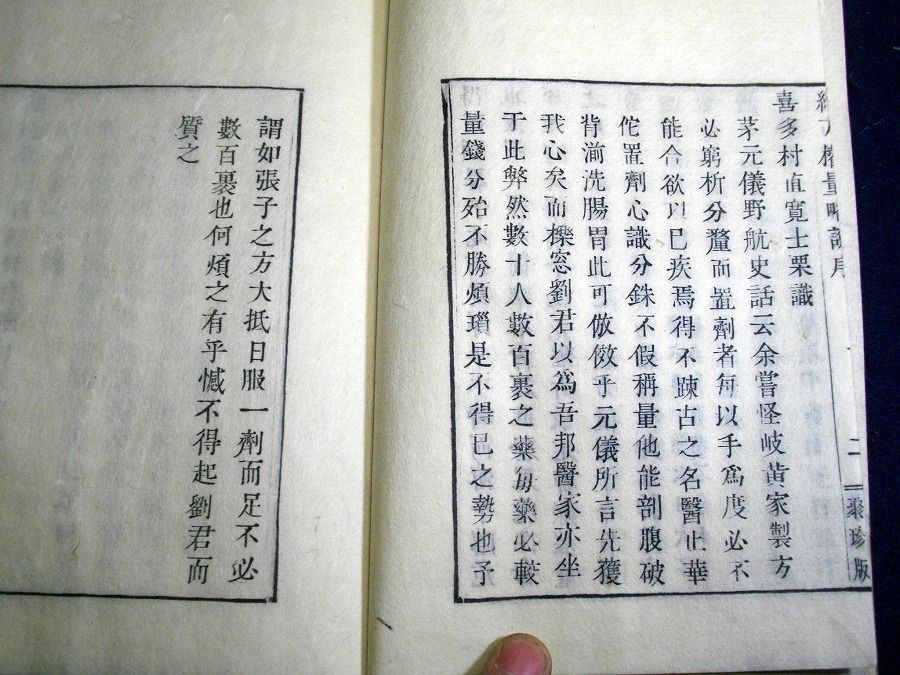 經方權量略說序
二
聚珍版
喜多村直寬士栗識
茅元儀野航史話云余嘗怪岐黃家製方
必窮析分釐而置劑者每以手為度必不
能合欲以已疾焉得不踈古之名醫止華
佗置劑心識分銖不假稱量他能剖腹破
背湔洗腸胃此可倣傚乎元儀所言先獲
我心矣而櫟窓劉君以為吾邦醫家亦坐
于此弊然數十人數百裹之藥每藥必較
量錢分殆不勝煩瑣是不得已之勢也予
謂如張子之方大抵日服一劑而足不必
數百裹也何煩之有乎憾不得起劉君而
質之